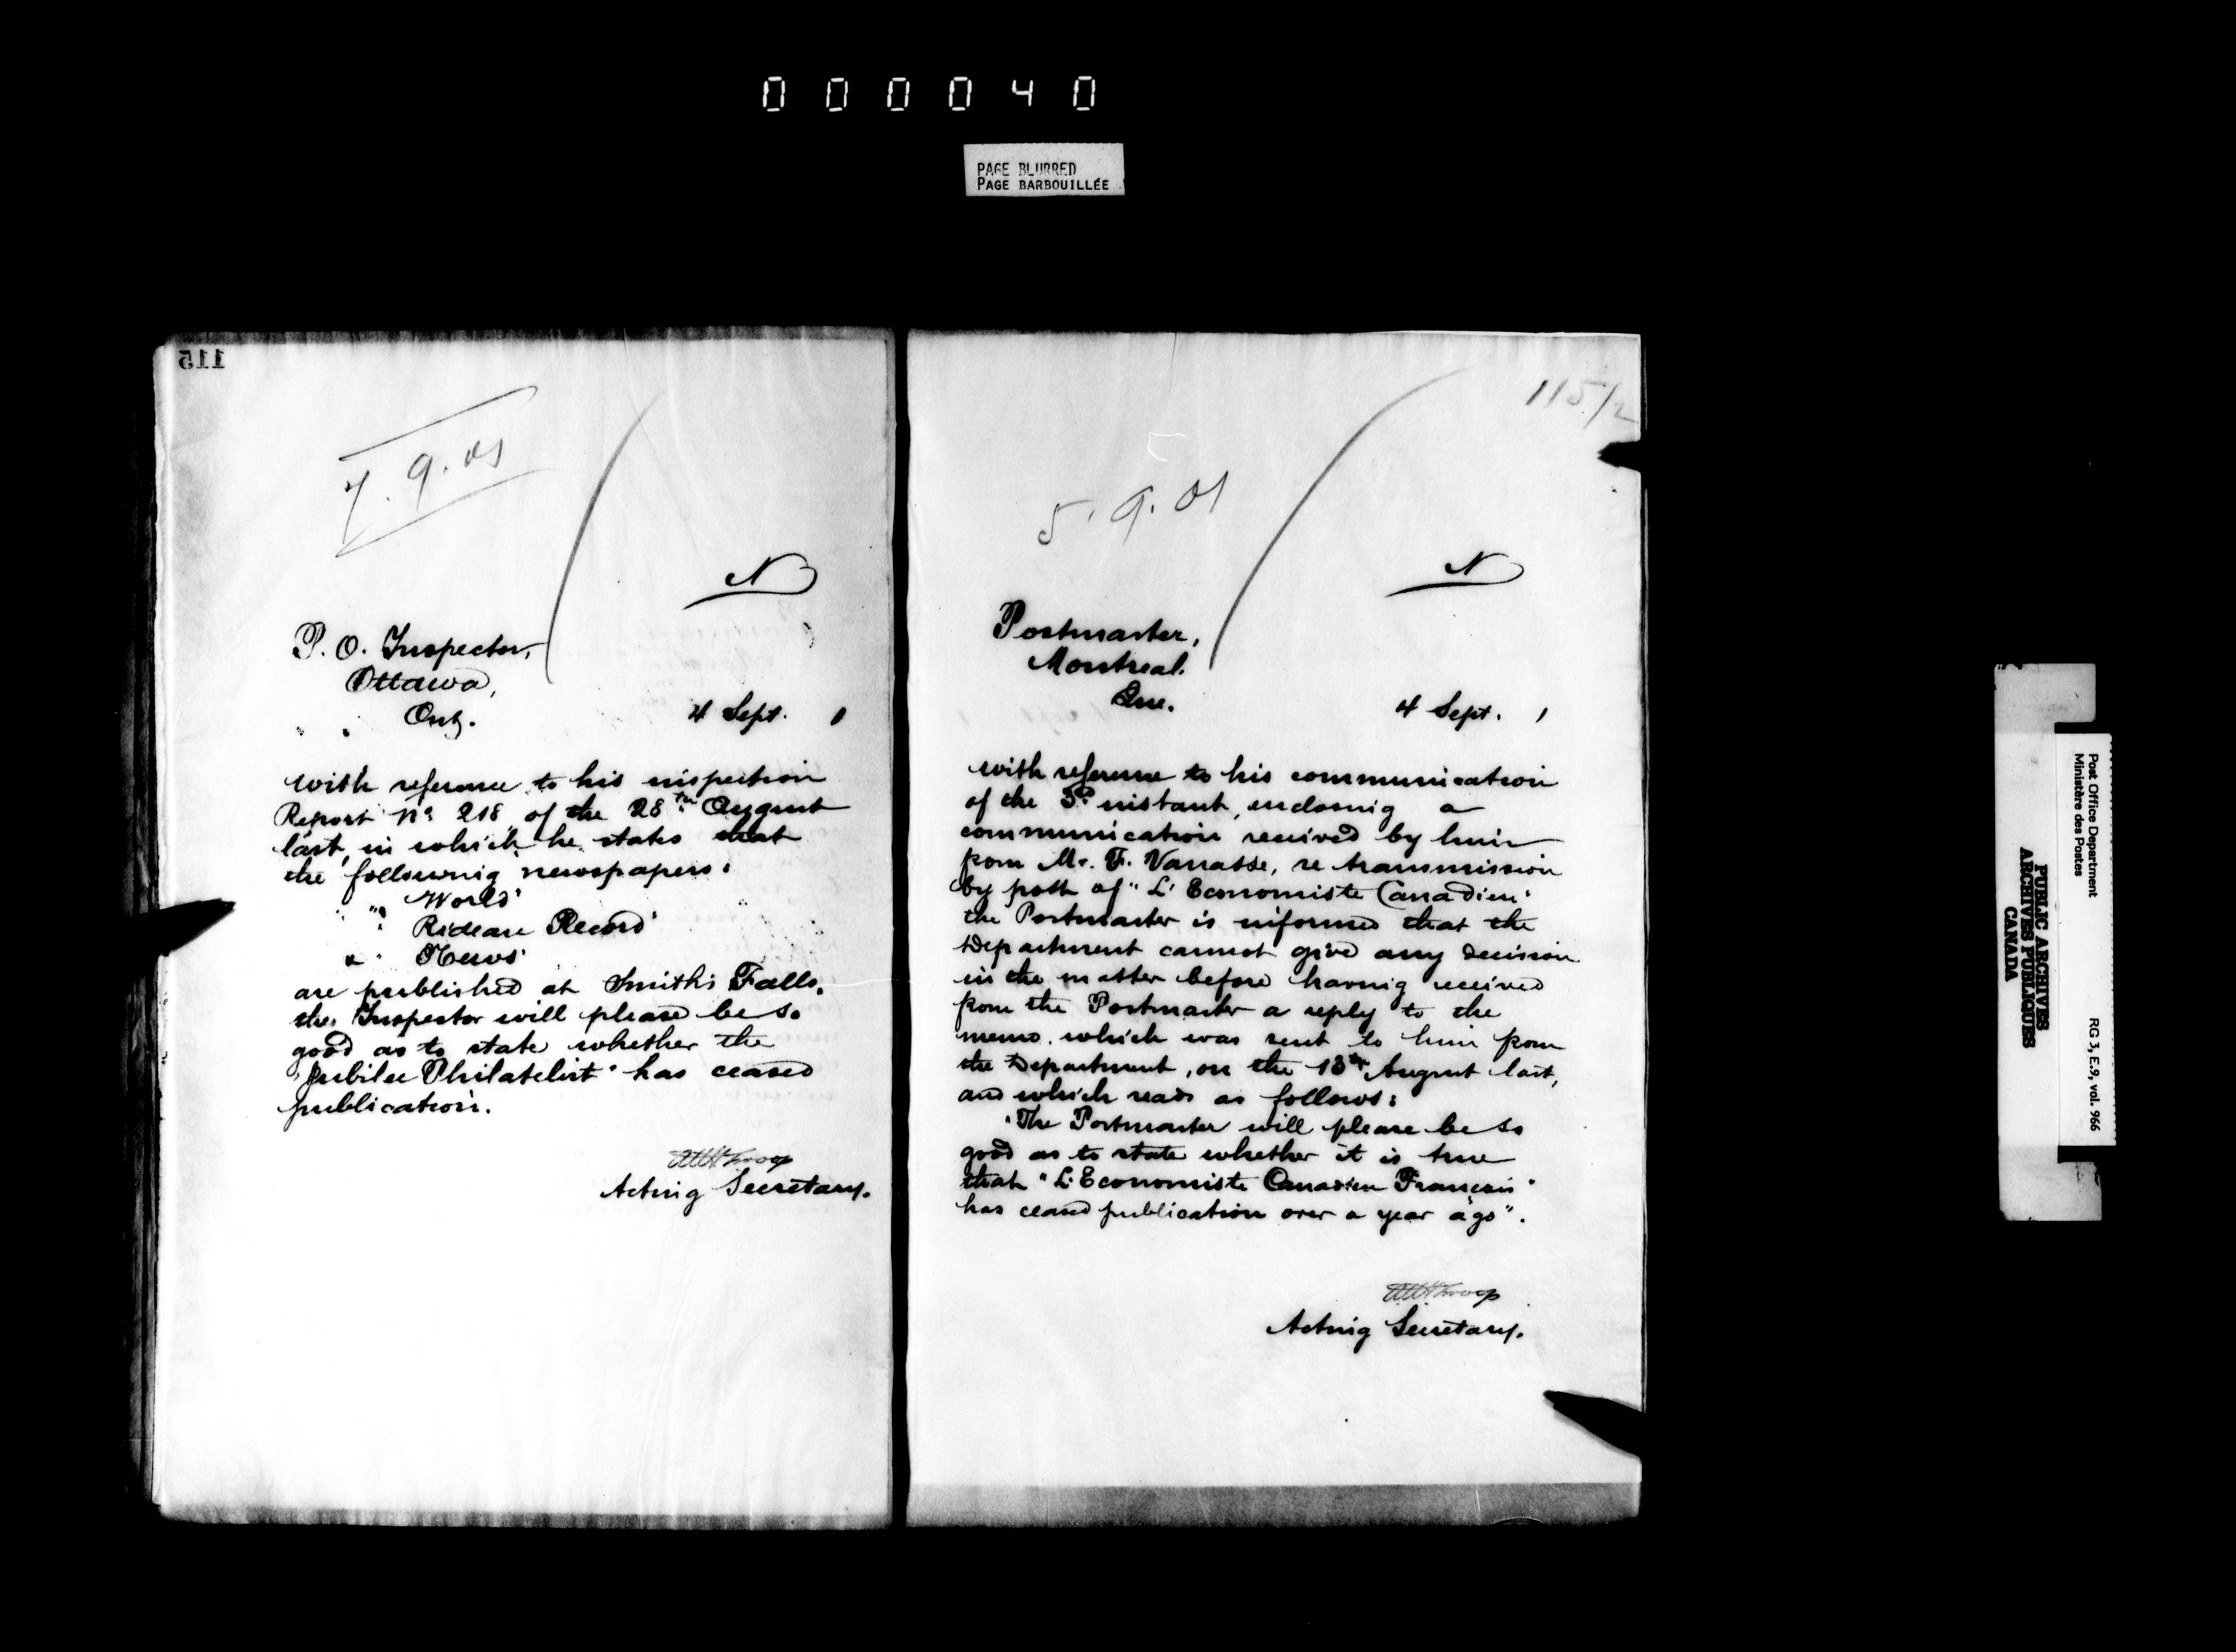 000040
PAGE BLURRED
PAGE BARBOUILLÉE
115
7.9.01
N
P. O. Inspector,
Ottawa,
Ont.
4 Sept. 1
with reference to his inspection
Report No 218 of the 28th August
last, in which he states that
the following newspapers:
" World"
" Rideau Record"
" News"
are published at Smith's Falls,
the Inspector will please be so
good as to state whether the
"Jubilee Philatelist" has ceased
publication.
Acting Secretary.
115/2
5.9.01
N
Postmaster,
Montreal.
Que.
4 Sept. 1
with reference to his communication
of the 3d instant, enclosing a
communication received by him
from Mr. F. Vanasse, re transmission
by post of "L'Economiste Canadien"
the Postmaster is informed that the
Department cannot give any decision
in the matter before having received
from the Postmaster a reply to the
memo. which was sent to him from
the Department, on the 13th August last,
and which reads as follows:
"The Postmaster will please be so
good as to state whether it is true
that "L'Economiste Canadien Français"
has ceased publication over a year ago".
Acting Secretary.
Post Office Department
Ministère des Postes
RG 3, E.9, vol. 966
PUBLIC ARCHIVES
ARCHIVES PUBLIQUES
CANADA